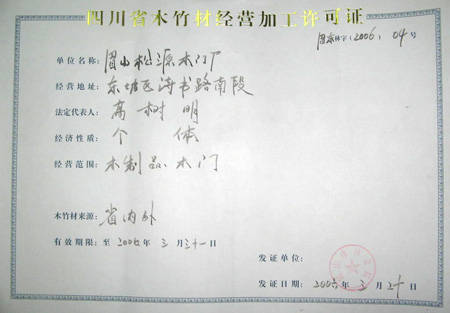 四川省木竹材经营加工许可证
(2006) 04号
单位名称: 眉山松源木门厂
经营地址: 东坡区诗书路南段
法定代表人: 高树明
经济性质: 个体
经营范围: 木制品 木门
木竹材来源: 省内外
有效期限: 至2006年三月三十一日
发证单位:
发证日期: 2006年3月20日